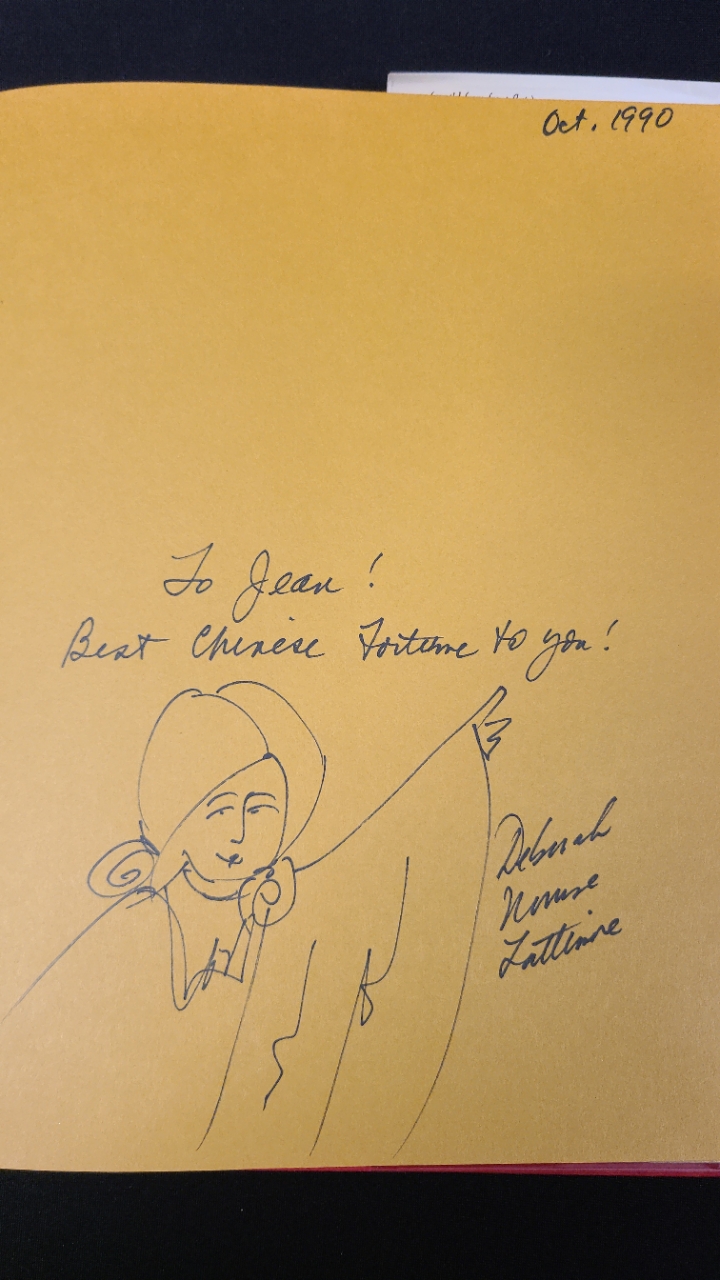 Oct. 1990
To Jean!
Best Chinese Fortune to you!
Deborah
Nourse
Lattimore